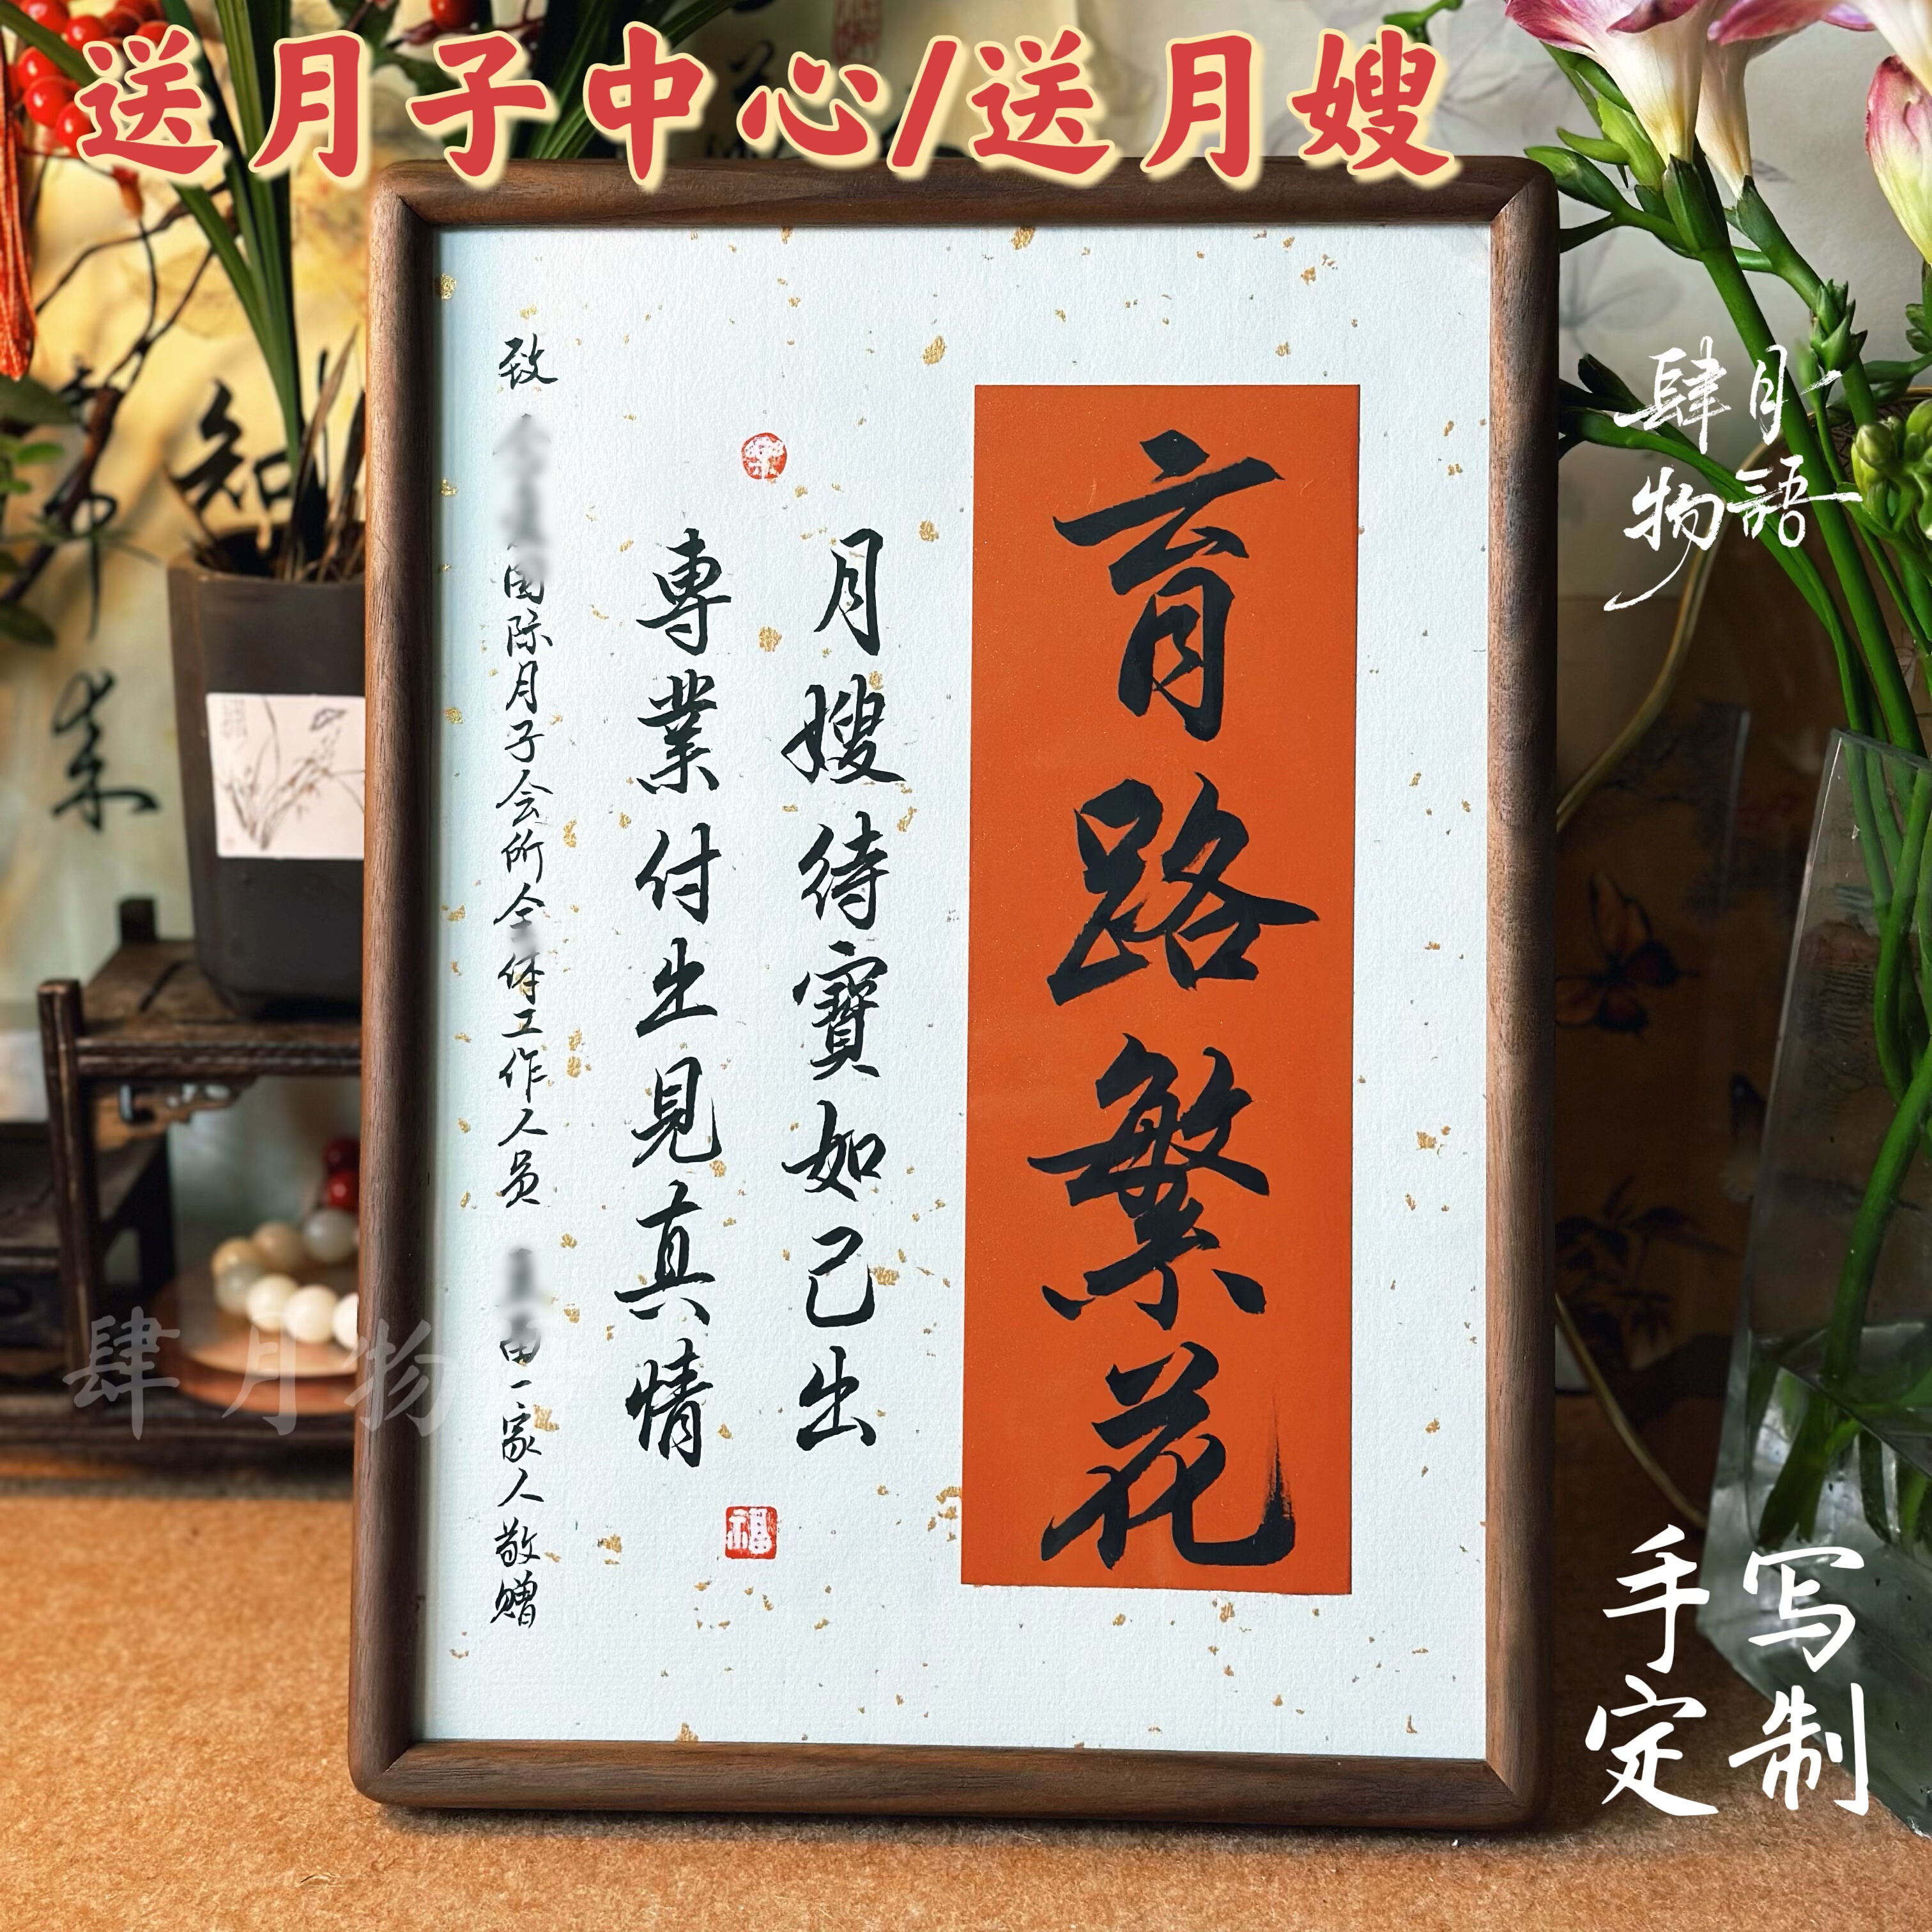 送月子中心/送月嫂
育路繁花
月嫂待寶如己出
專業付出見真情
致
国际月子会所全体工作人员
由一家人敬赠
福
肆月
物語
手写
定制
肆月物
知